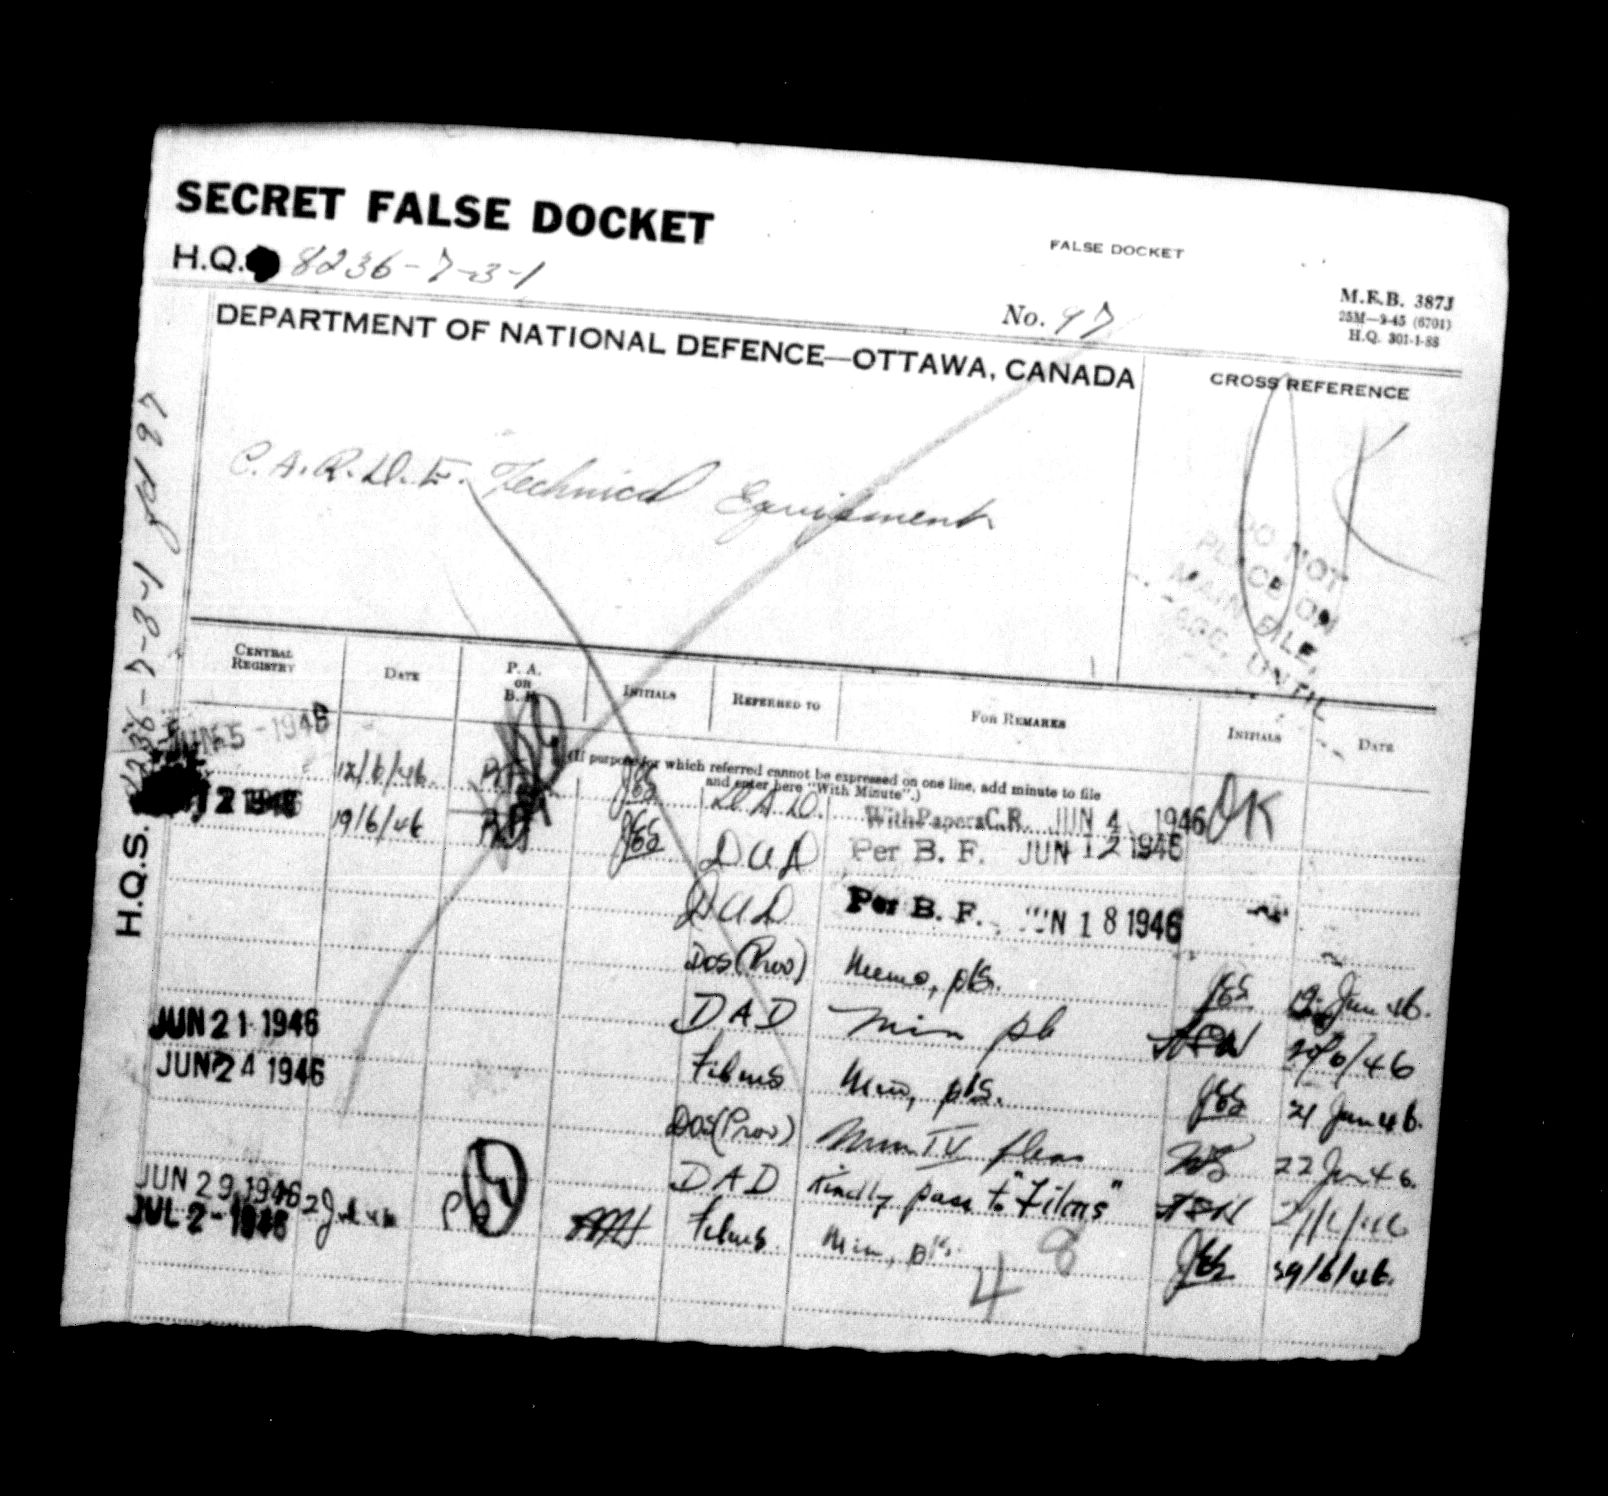 SECRET FALSE DOCKET
FALSE DOCKET
H.Q. 8236-7-3-1
No. 97
M.F.B. 387J
25M—9-45 (6701)
H.Q. 301-1-88
DEPARTMENT OF NATIONAL DEFENCE—OTTAWA, CANADA
CROSS REFERENCE
C.A.R.D.E. Technical Equipment
DO NOT
PLACE ON
MAIN FILE,
UNTIL
H.Q.S. 8236-7-3-1 fd 97
CENTRAL REGISTRY
DATE
P. A. OR B. F.
INITIALS
REFERRED TO
FOR REMARKS
INITIALS
DATE
(If purpose for which referred cannot be expressed on one line, add minute to file
and enter here "With Minute".)
JUN 5 - 1946 12/6/46. D.A.D. With Papers C.R. JUN 4 1946 OK
12 1946 19/6/46 DAD Per B. F. JUN 12 1946
DAD Per B. F. JUN 18 1946
DOS (Prov) Memo, pls. 19 Jun 46.
JUN 21 1946 DAD Min pls 20/6/46
JUN 24 1946 Films Min, pls. 21 Jun 46.
DOS (Prov) Min IV please 22 Jun 46.
JUN 29 1946 DAD Kindly pass to "Films"
JUL 2 - 1946 2 Jul 46 PA Films Min, pls. 29/6/46.
4 8